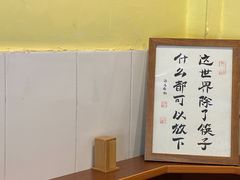 这世界除了筷子
什么都可以放下